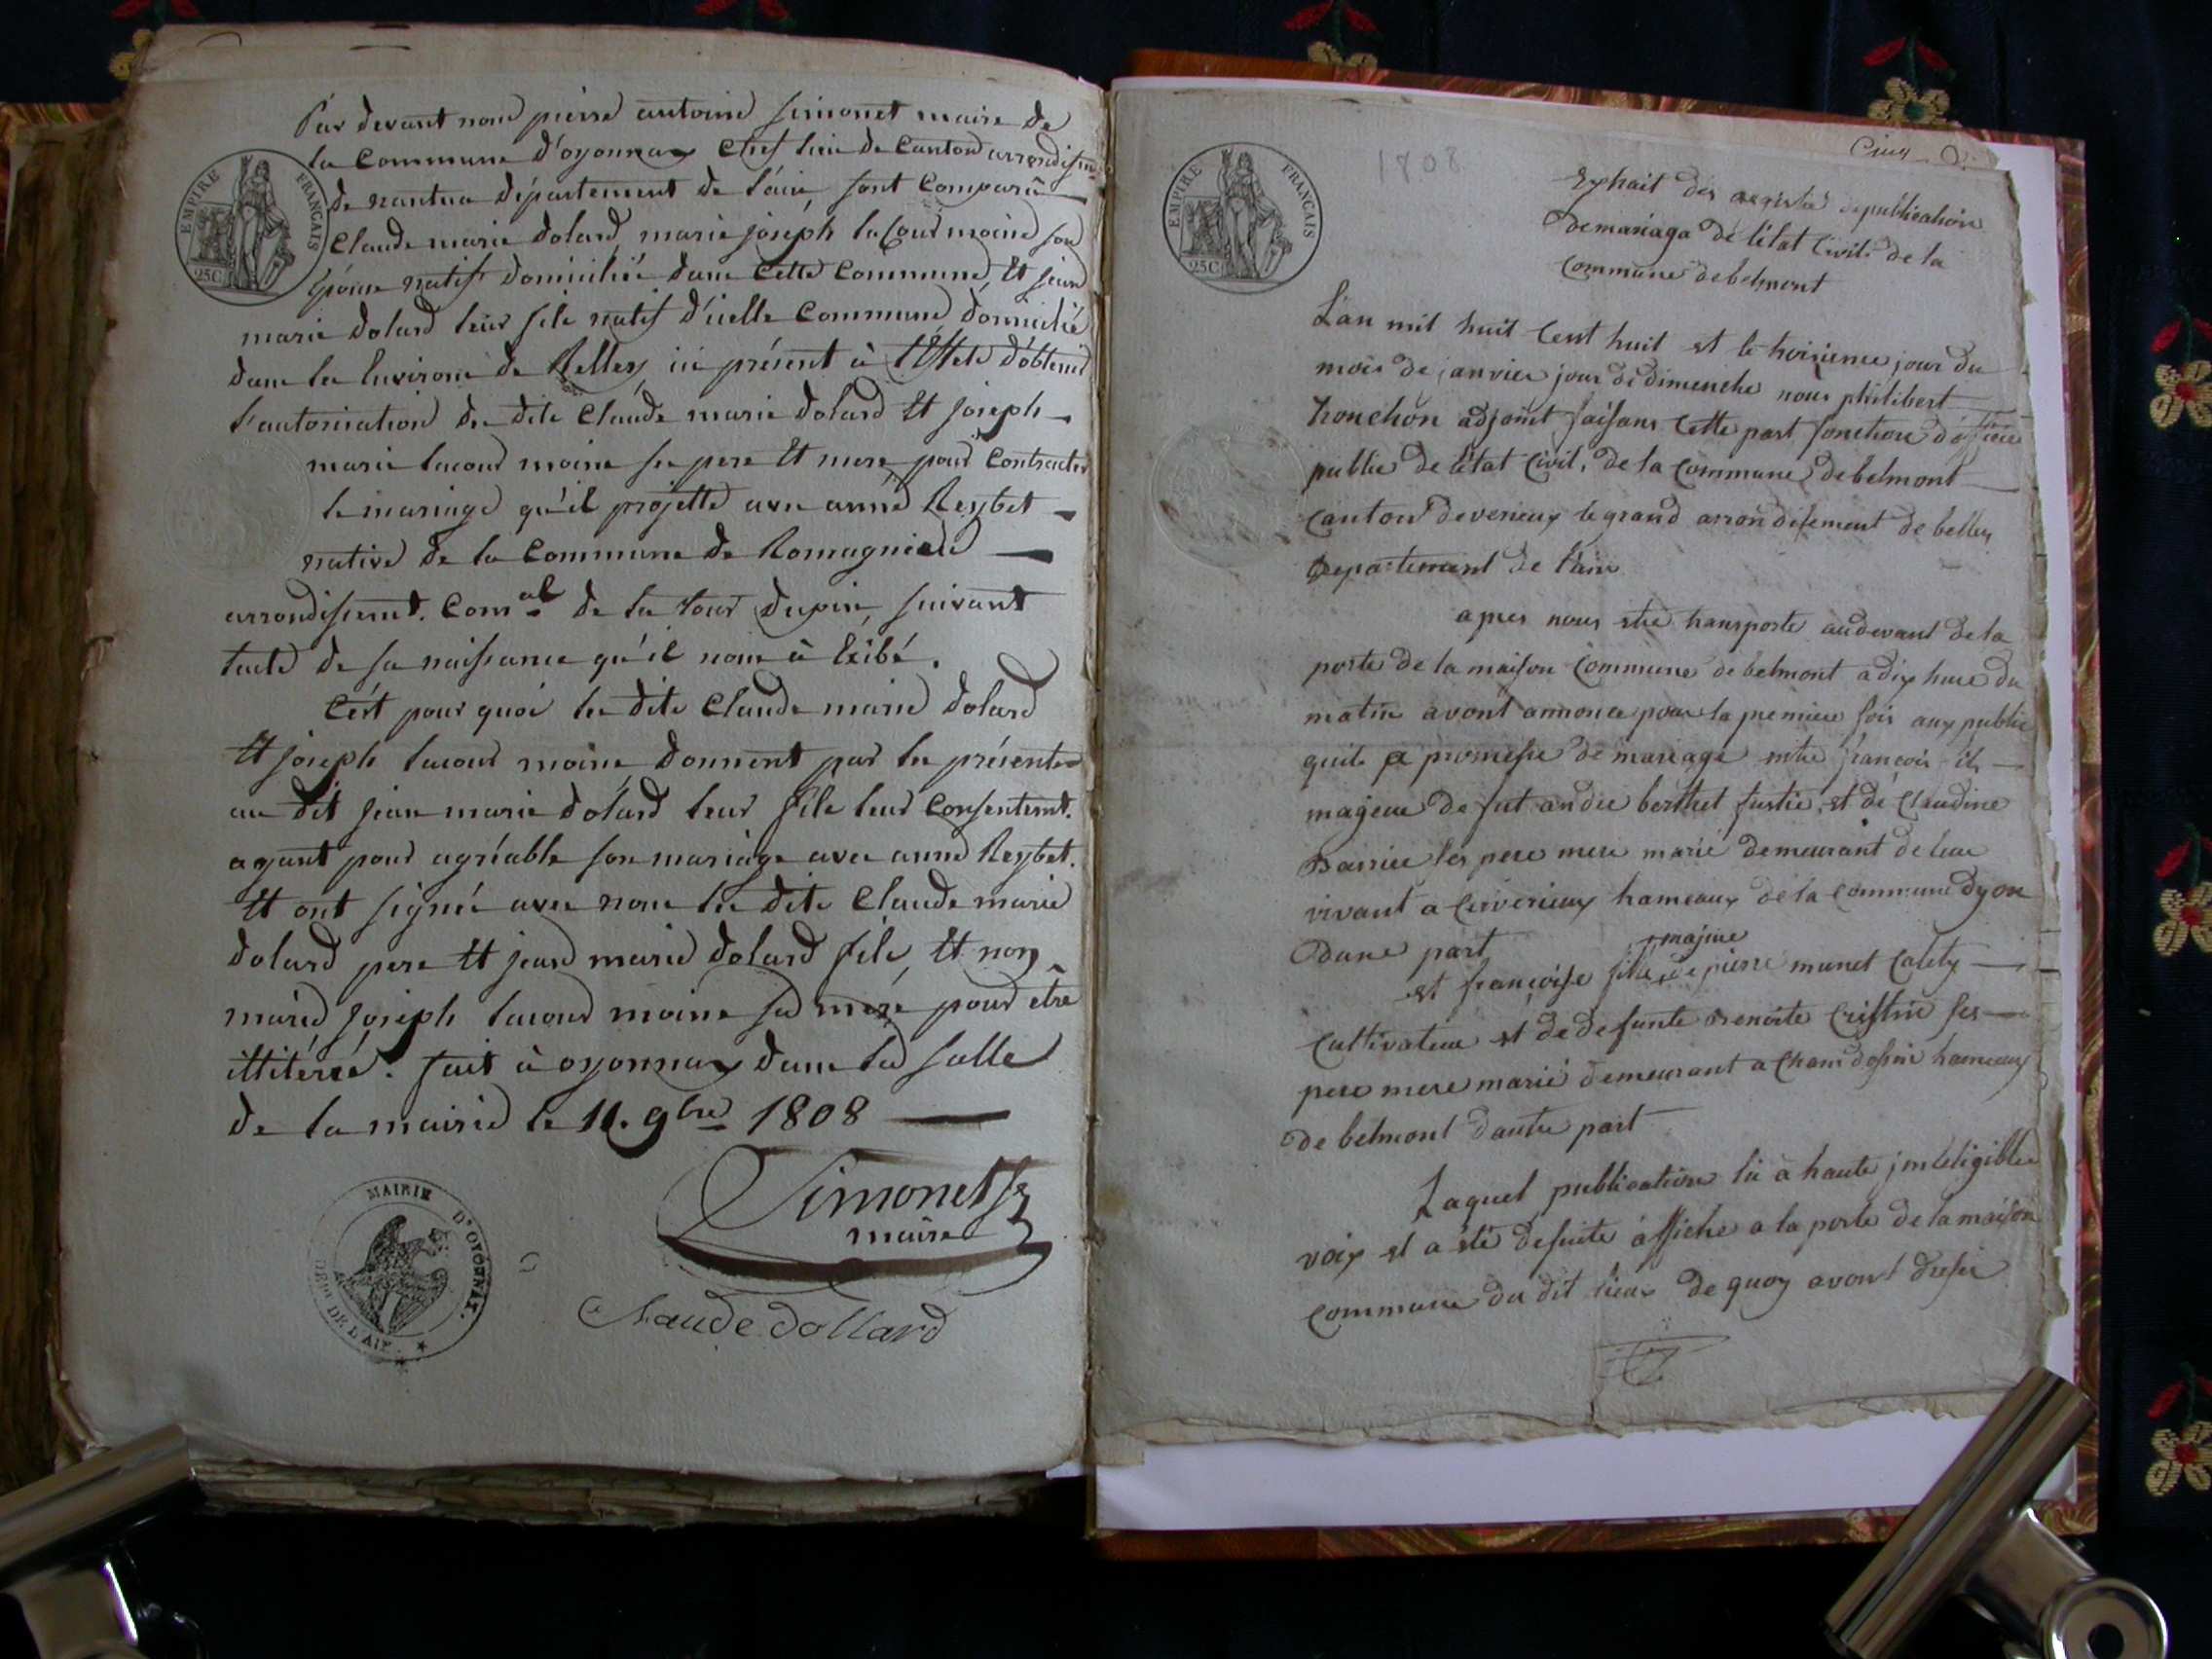 Par devant nous pierre antoine Simonet maire de
la Commune d'oyonnax Chef lieu de Canton arrondissem.
de nantua département de l'ain, sont Comparû
Claude marie dolard, marie joseph la Cour moine son
Epouse natifs domiciliés dans Cette Commune, Et jean
marie dolard leur fils natif d'icelle Commune domicilié
dans les Environs de Belley ici présent à l'Effet d'obtenir
l'autorisation des dits Claude marie dolard Et joseph
marie lacour moine ses pere Et mere pour Contracter
le mariage qu'il projette avec anne Reybet
native de la Commune de Romagnieu
arrondissemt. Comal de la tour dupin, suivant
l'acte de sa naissance qu'il nous à Exibé.
C'est pour quoi les dits Claude marie dolard
Et joseph lacour moine donnent par les présentes
au dit jean marie dolard leur fils leur Consentemt.
ayant pour agréable son mariage avec anne Reybet.
Et ont signés avec nous les dits Claude marie
dolard pere Et jean marie dolard fils, Et non
marie joseph lacour moine sa mere pour être
illitérée. fait à oyonnax dans la salle
de la mairie le 11. 9bre 1808
Simonet
maire
Claude dollard
EMPIRE FRANÇAIS
25C
MAIRIE D'OYONNAX.
DEPt DE L'AIN
1808
Extrait des registes de publication
de mariage de l'état Civil de la
Commune de belmont
L'an mil huit Cent huit et le troisieme jour du
mois de janvier jour de dimenche nous philibert
tronchon adjoint faisans cette part fonction d'oficié
public de l'état Civil, de la Commune de belmont
Canton de verieux le grand arrondisement de belley
Departement de l'ain
apres nous etre transporté audevant de la
porte de la maison Commune de belmont a dix hure du
matin avont annoncé pour la premiere fois aux public
quil a promesse de mariage entre françois fils
mageur de fut andré berthet fustie, et de Claudine
Barrier ses pere mere marié demeurant de leur
vivant a Cerverieux hameaux de la Commune dyon
dune part
et françoise fille majeure de pierre munet Calety
Cultivateur et de defunte Benoite Cristin ses
pere mere marié demeurant a Cham dossin hameaux
de belmont dautre part
Laquel publication lu à haute jnteligible
voix et a été desuite affiché a la porte de la maison
Commune du dit lieux de quoy avont dressé
EMPIRE FRANÇAIS
25C